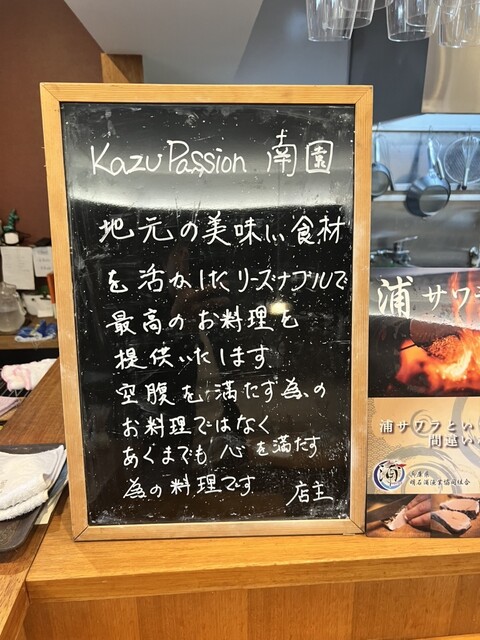 Kazu Passion 南園
地元の美味しい食材
を活かしたリーズナブルで
最高のお料理を
提供いたします
空腹を満たす為の
お料理ではなく
あくまでも心を満たす
為の料理です 店主
浦サワ
浦サワラとい
間違い
兵庫県
明石浦漁業協同組合